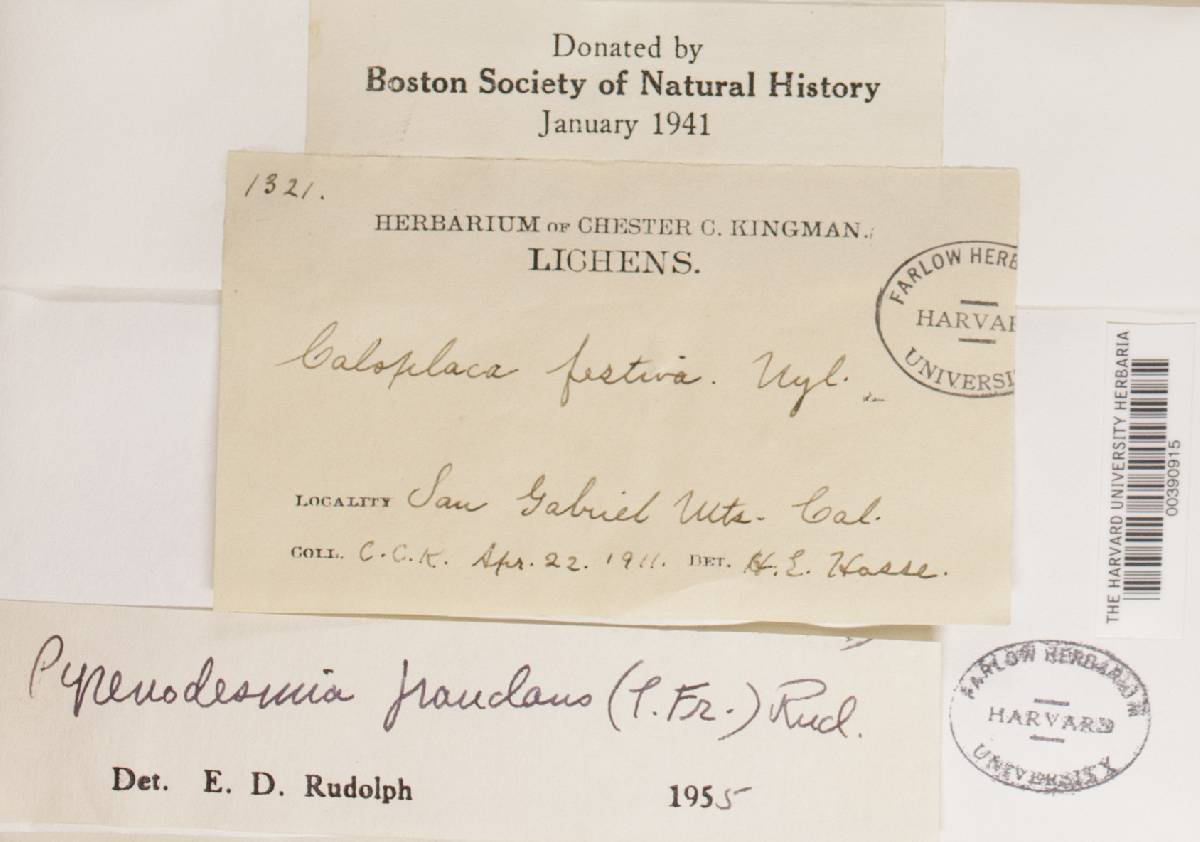 Donated by
Boston Society of Natural History
January 1941
1321.
HERBARIUM OF CHESTER C. KINGMAN.
LICHENS.
FARLOW HERB
HARVAR
UNIVERSI
Caloplaca festiva. Nyl.
LOCALITY San Gabriel Mts. Cal.
COLL. C.C.K. Apr. 22. 1911. DET. H. E. Hasse.
THE HARVARD UNIVERSITY HERBARIA
00390915
Pyrenodesmia fraudans (T. Fr.) Rud.
Det. E. D. Rudolph 1955
FARLOW HERBARIUM
HARVARD
UNIVERSITY